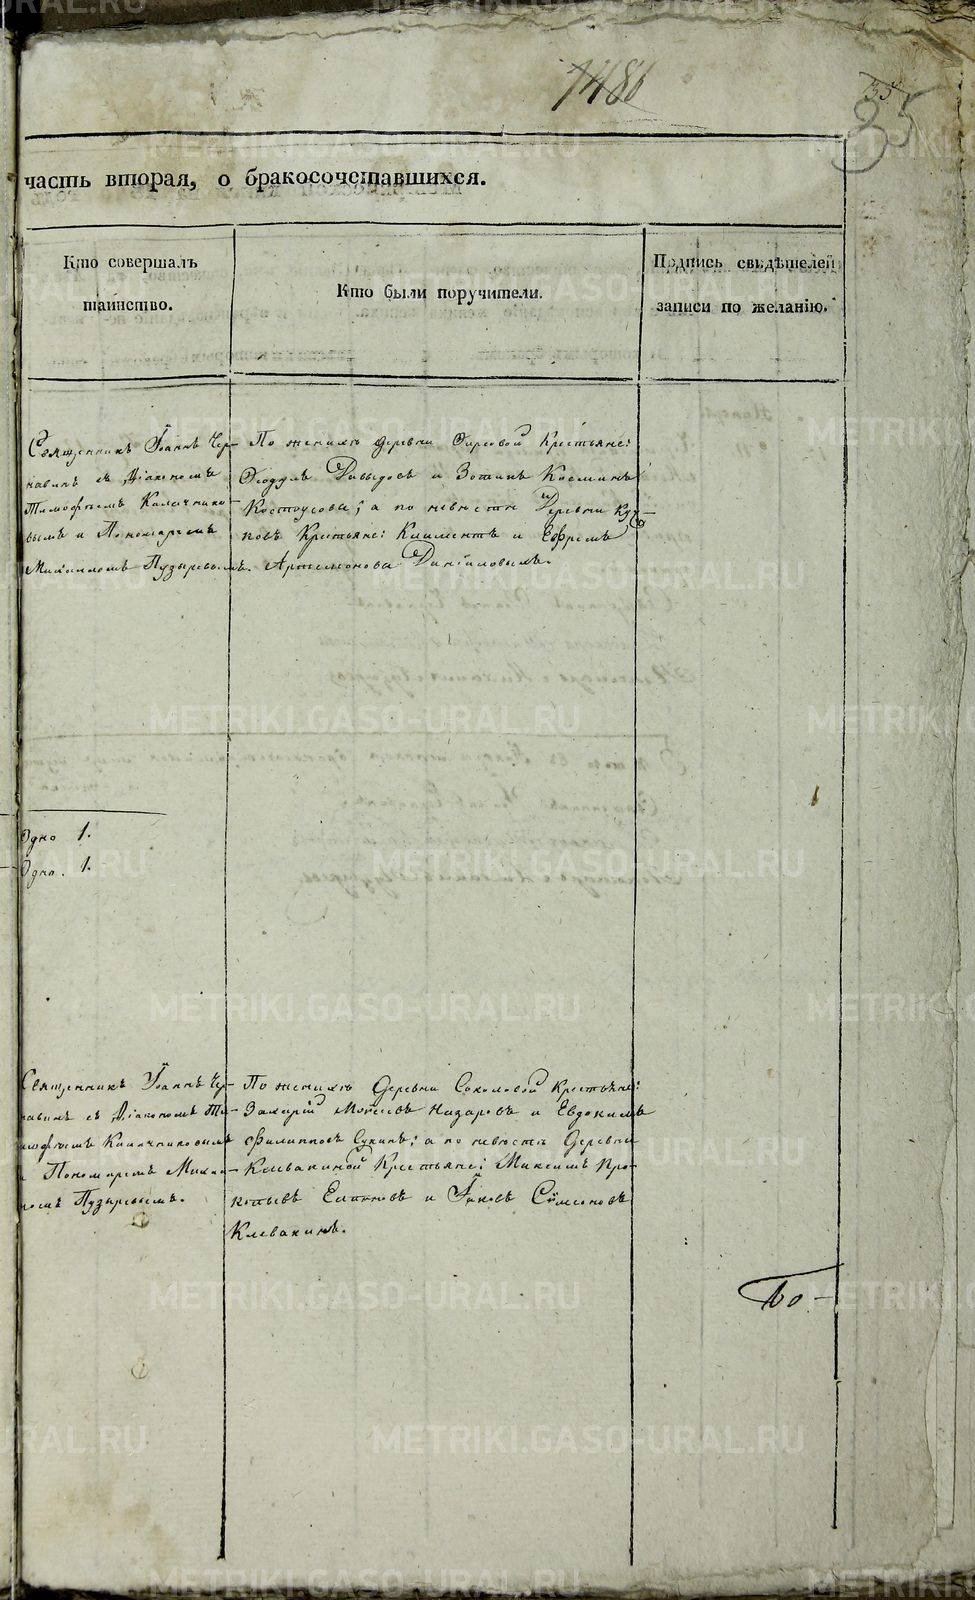 1486
35
35
часть вторая, о бракосочетавшихся.
Кто совершалъ
таинство.
Кто были поручители.
Подпись свидѣтелей
записи по желанію.
Священникъ Іоаннъ Чер-
навинъ съ Діакономъ
Тимофѣемъ Калачнико-
вымъ и Пономаремъ
Михаиломъ Пузыревымъ.
По женихѣ деревни Крестьяне:
Ѳеодулъ Давыдовъ и Зотикъ Косминъ
Костоусова; а по невѣстѣ Деревни
Крестьяне: Климентъ и Ефремъ
Артемонова Даниловымъ.
Одно 1.
Одна. 1.
Священникъ Іоаннъ Чер-
навинъ съ Діакономъ Ти-
мофѣемъ Калачниковымъ
и Пономаремъ Михаи-
ломъ Пузыревымъ.
По женихѣ Деревни Соколовой Крестьяне:
Захарій Моисеевъ Назаровъ и Евдокимъ
Филипповъ Сукинъ; а по невѣстѣ Деревни
Клевакиной Крестьяне: Максимъ Про-
копьевъ и Іаковъ Сѵмеоновъ
Клевакинъ.
METRIKI.GASO-URAL.RU